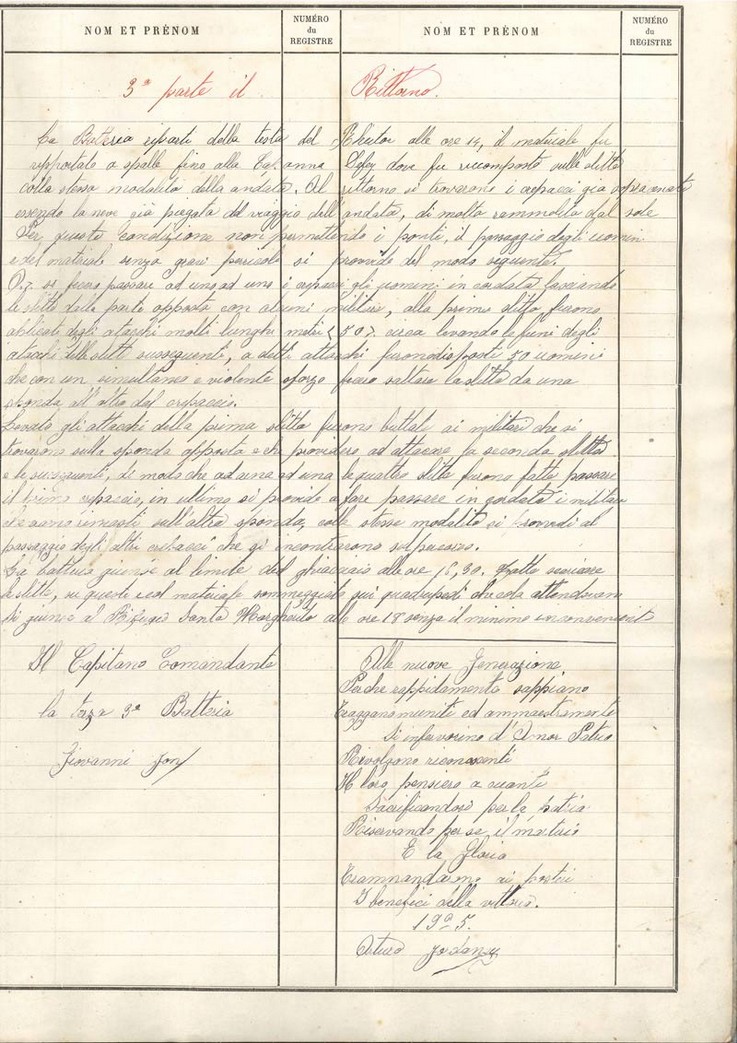 NOM ET PRÉNOM NUMÉRO du REGISTRE NOM ET PRÉNOM NUMÉRO du REGISTRE
3ª parte il Rittorno.
La Batteria ripartì dalla testa del Rhutor alle ore 14, il materiale fu
ripportato a spalle fino alla Cap. anna dove fu ricomposto nelle slitte
colla stessa modalità della andata. Al rittorno si trovarono i crepacci già
essendo la neve già piegata dal viaggio dell'andata, di molto rammolita dal sole
Per queste condizione non permettendo i ponti, il passaggio degli uomini
e del materiale senza gravi pericoli si provide del modo seguente.
si fecero passare ad uno ad uno i crepacci gli uomini in cordata lasciando
le slitte dalla parte opposta con alcuni militari, alla prima slitta furono
aplicati degli attacchi molti lunghi metri 50 circa levando le funi degli
attacchi delle slitte susseguenti, a detti attacchi furono disposti 50 uomini
che con un simultaneo e violento sforzo fecero saltare la slitta da una
sponda all'altra del crepaccio.
Levato gli attacchi della prima slitta furono buttati ai militari che si
trovarono sulla sponda opposta e che providero ad attacare la seconda slitta
e le susseguenti, di modo che ad una ad una le quattro slitte furono fatte passare
il primo crepaccio, in ultimo si provide a fare passare in cordata i militari
rimasti sull'altra sponda, colle stesse modalità si provedì al
passaggio degli altri crepacci che si incontrarono sul percorso.
La batteria giunse al limite del ghiacciaio alle ore 15,30. Fatte scaricare
le slitte, su queste e col materiale sommeggiato sui quadrupedi che colà attendevano
Si giunse al Rifugio Santa Margherita alle ore 18 senza il minimo inconveniente
Il Capitano Comandante
la terza 3ª Batteria
Giovanni
Alle nuove Generazione
Perche rappidamente sappiano
ed ammaestramento
Si infervorino d'Amor Patrio
Rivolgono riconoscenti
Il loro pensiero a quanti
Sacrificandosi per la patria
Riservando per se il martirio
E la Gloria
Tramandarono ai posteri
I benefici della vittoria.
1925.
Arturo